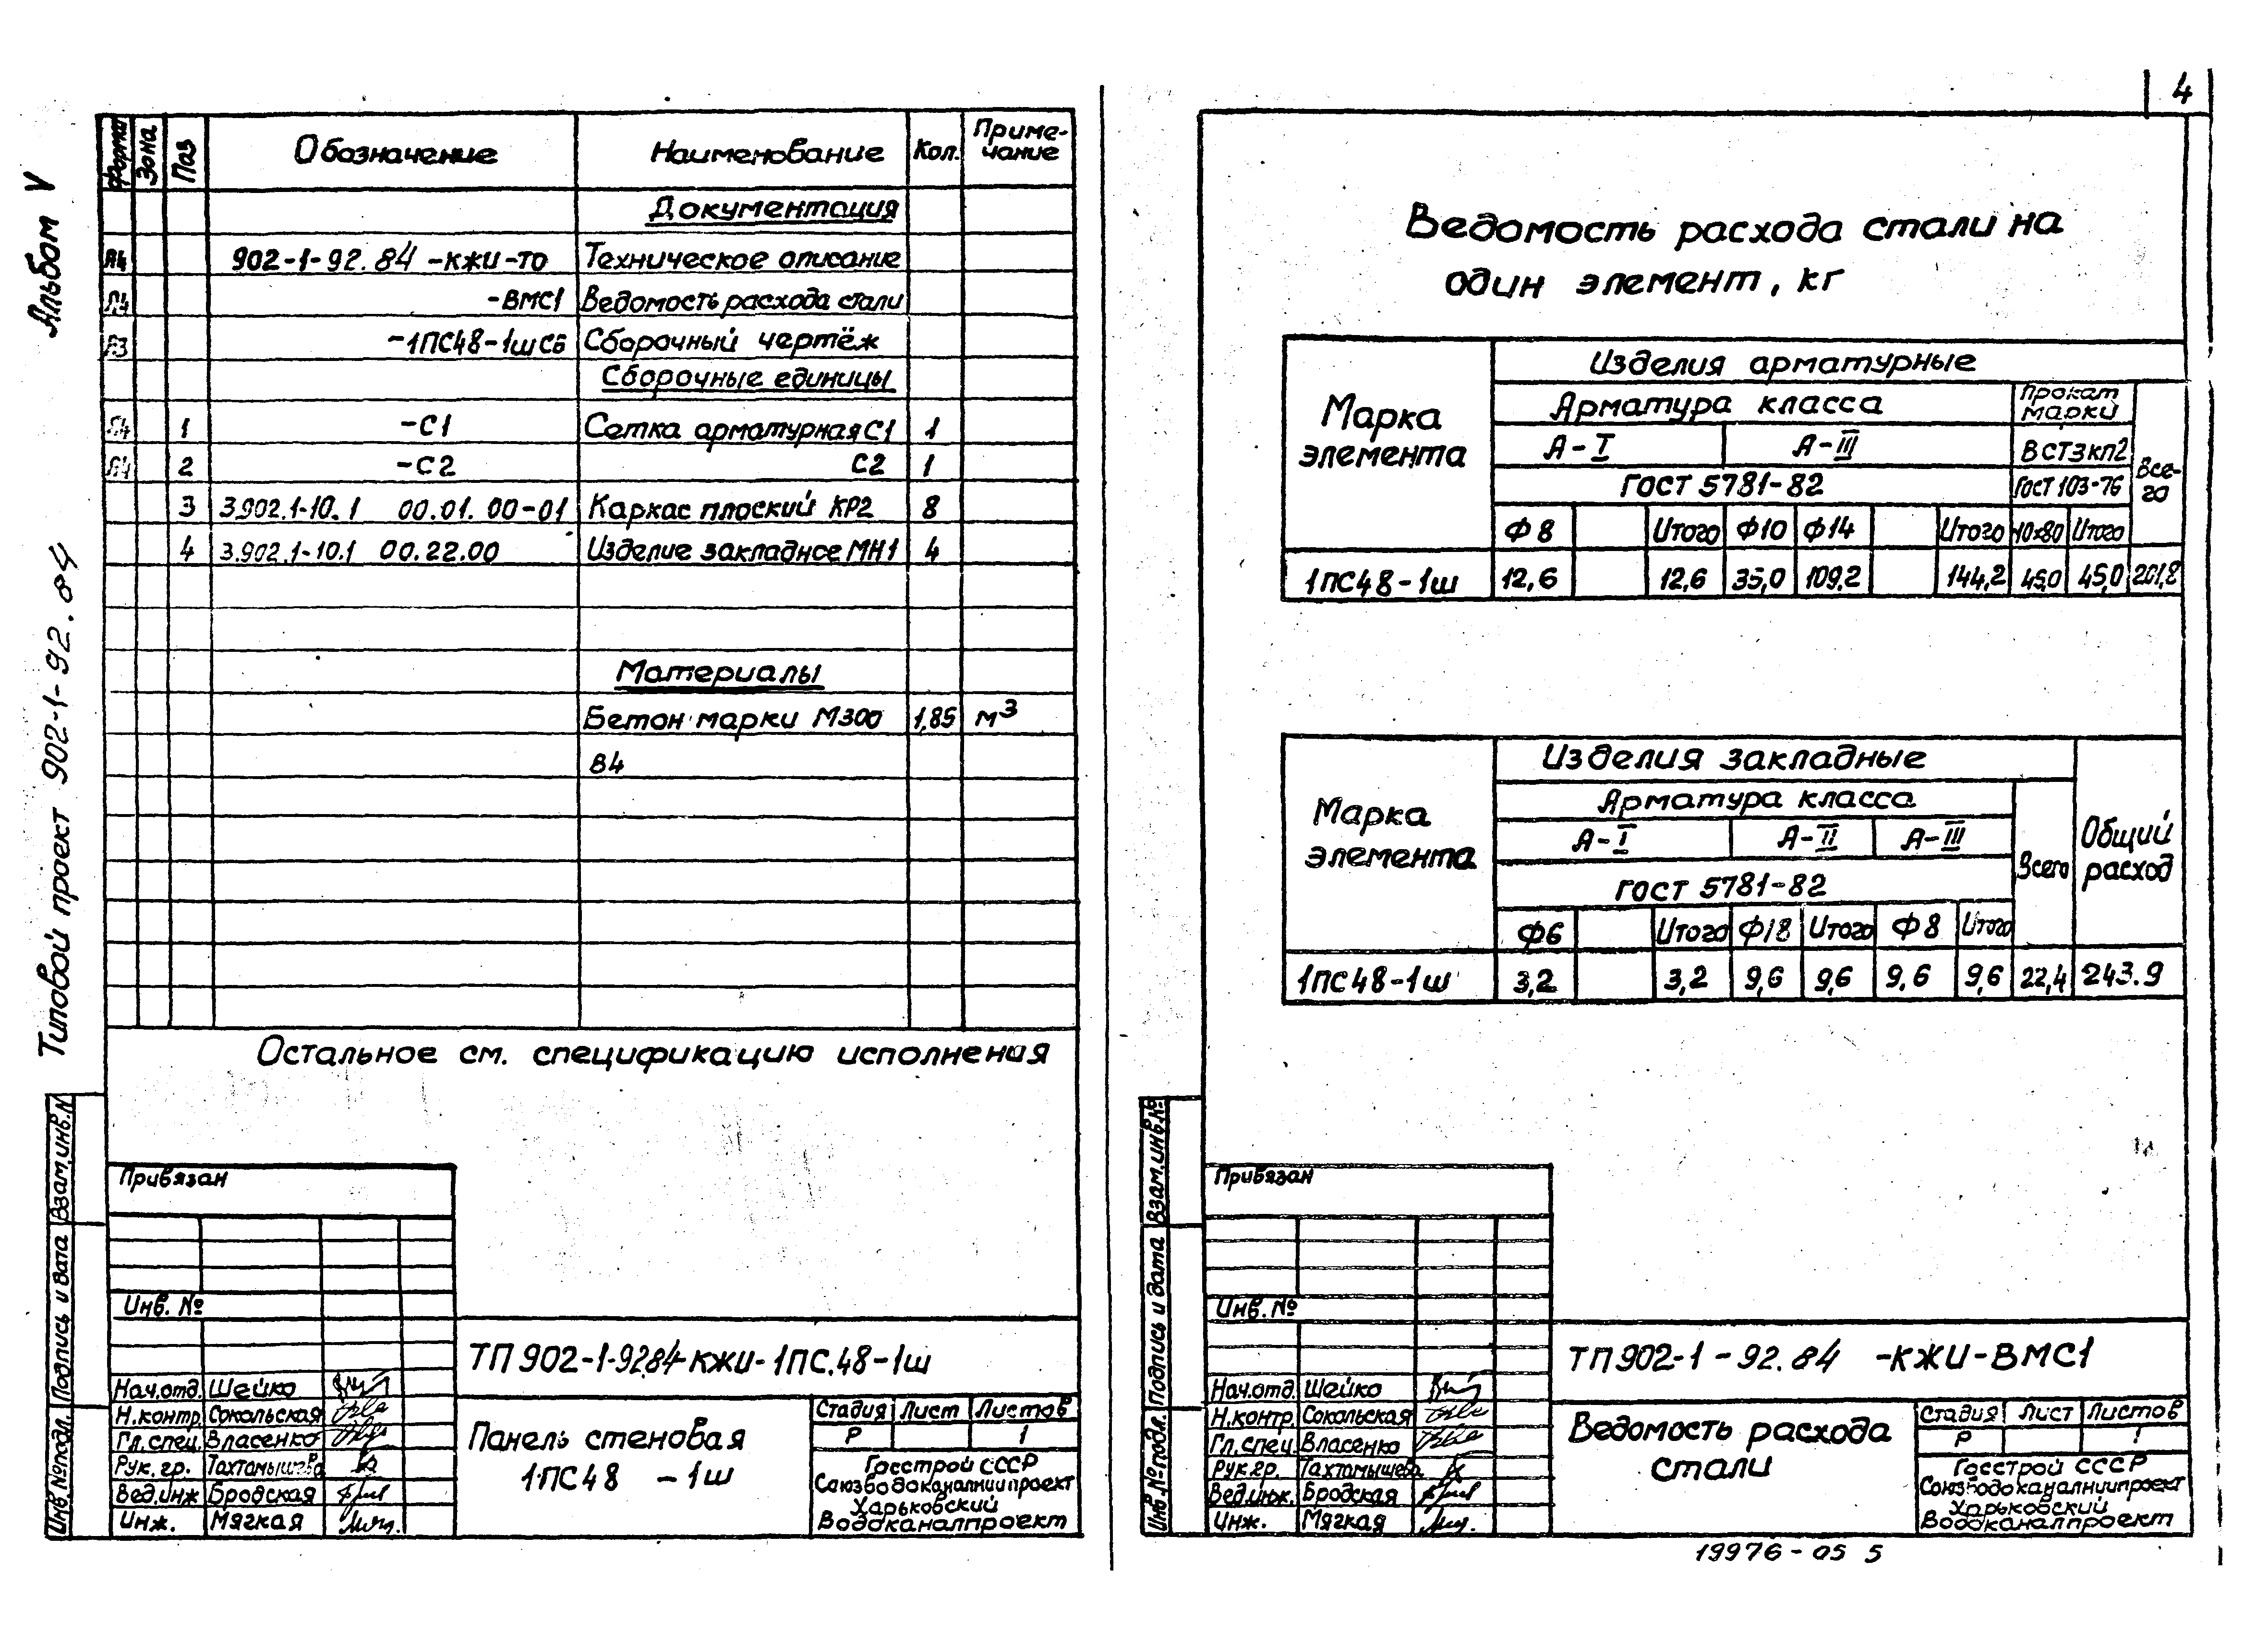 4
Альбом V
Типовой проект 902-1-92.84
Формат Зона Поз Обозначение Наименование Кол. Приме-
чание
Документация
А4 902-1-92.84-КЖИ-ТО Техническое описание
А4 -ВМС1 Ведомость расхода стали
А3 -1ПС48-1шСБ Сборочный чертёж
Сборочные единицы
А4 1 -С1 Сетка арматурная С1 1
А4 2 -С2 С2 1
3 3.902.1-10.1 00.01.00-01 Каркас плоский КР2 8
4 3.902.1-10.1 00.22.00 Изделие закладное МН1 4
Материалы
Бетон марки М300 1,85 м3
В4
Остальное см. спецификацию исполнения
Инв.№подл. Подпись и дата Взам.инв.№
Привязан
Инв. №
ТП 902-1-92.84-КЖИ-1ПС.48-1ш
Нач.отд. Шейко
Н.контр. Сокольская
Гл.спец. Власенко
Рук.гр. Тахтамышева
Вед.инж Бродская
Инж. Мягкая
Панель стеновая
1ПС48 -1ш
Стадия Лист Листов
Р 1
Госстрой СССР
Союзводоканалниипроект
Харьковский
Водоканалпроект
Ведомость расхода стали на
один элемент, кг
Марка
элемента
Изделия арматурные
Арматура класса Прокат
марки
А-I А-III ВСт3кп2 Все-
го
ГОСТ 5781-82 ГОСТ 103-76
Ф8 Итого Ф10 Ф14 Итого 40х80 Итого
1ПС48-1ш 12,6 12,6 35,0 109,2 144,2 45,0 45,0 201,8
Марка
элемента
Изделия закладные
Арматура класса
А-I А-II А-III Всего Общий
расход
ГОСТ 5781-82
Ф6 Итого Ф18 Итого Ф8 Итого
1ПС48-1ш 3,2 3,2 9,6 9,6 9,6 9,6 22,4 243.9
Инв.№подл. Подпись и дата Взам.инв.№
Привязан
Инв. №
ТП 902-1-92.84 -КЖИ-ВМС1
Нач.отд. Шейко
Н.контр. Сокольская
Гл.спец. Власенко
Рук.гр. Тахтамышева
Вед.инж. Бродская
Инж. Мягкая
Ведомость расхода
стали
Стадия Лист Листов
Р 1
Госстрой СССР
Союзводоканалниипроект
Харьковский
Водоканалпроект
19976-05 5